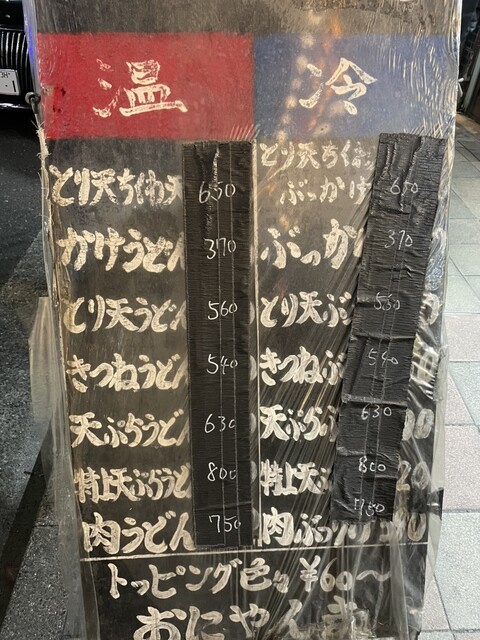 温 冷
とり天ちくわ天 650
かけうどん 370
とり天うどん 560
きつねうどん 540
天ぷらうどん 630
特上天ぷらうど 800
肉うどん 750
とり天ちくわ
ぶっかけ 650
ぶっか 370
とり天ぶ 550
きつねぶ 540
天ぷら 630
特上天ぷ 800
肉ぶっ 750
トッピング色々¥60〜
おにやんま